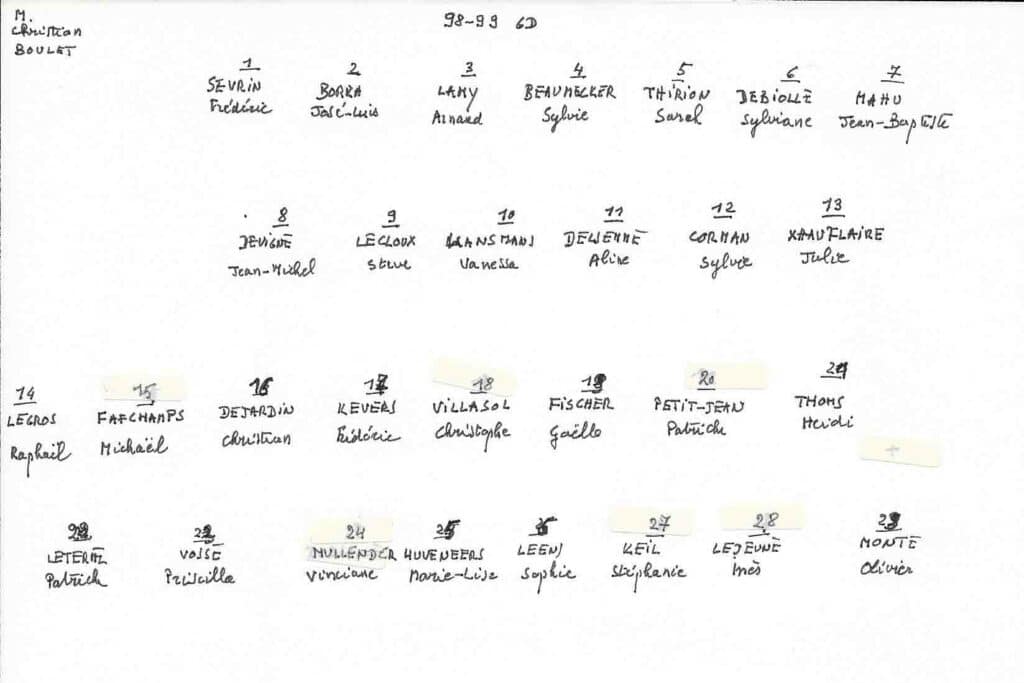 M.
Christian
BOULET
98-99 6D
1 2 3 4 5 6 7
SEVRIN BORRA LAMY BEAUMECKER THIRION DEBIOLLE MAHU
Frédéric José-Luis Arnaud Sylvie Sarah Sylviane Jean-Baptiste
8 9 10 11 12 13
DEVIGNE LECLOUX DELIENNE CORMAN XHAUFLAIRE
Jean-Michel Steve Vanessa Aline Sylvie Julie
14 15 16 17 18 19 20 21
LEGROS FAFCHAMPS DEJARDIN KEVERS VILLASOL FISCHER PETIT-JEAN THOMS
Raphaël Michaël Christian Frédéric Christophe Gaëlle Patrick Heidi
+
22 23 24 25 26 27 28 29
VOSSE MULLENDER HUVENEERS LEENS KEIL LEJEUNE MONTE
Patrick Priscilla Vinciane Marie-Lise Sophie Stéphanie Inès Olivier